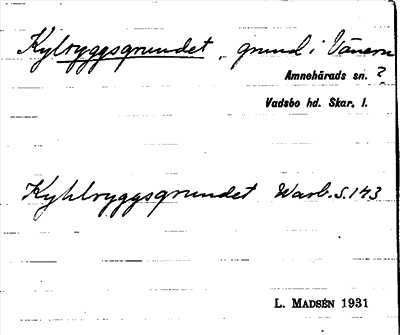 Kylryggsgrundet, grund i Vänern
Amnehärads sn. ?
Vadsbo hd. Skar. l.
Kyhlryggsgrundet Warb. S. 173
L. MADSÉN 1931